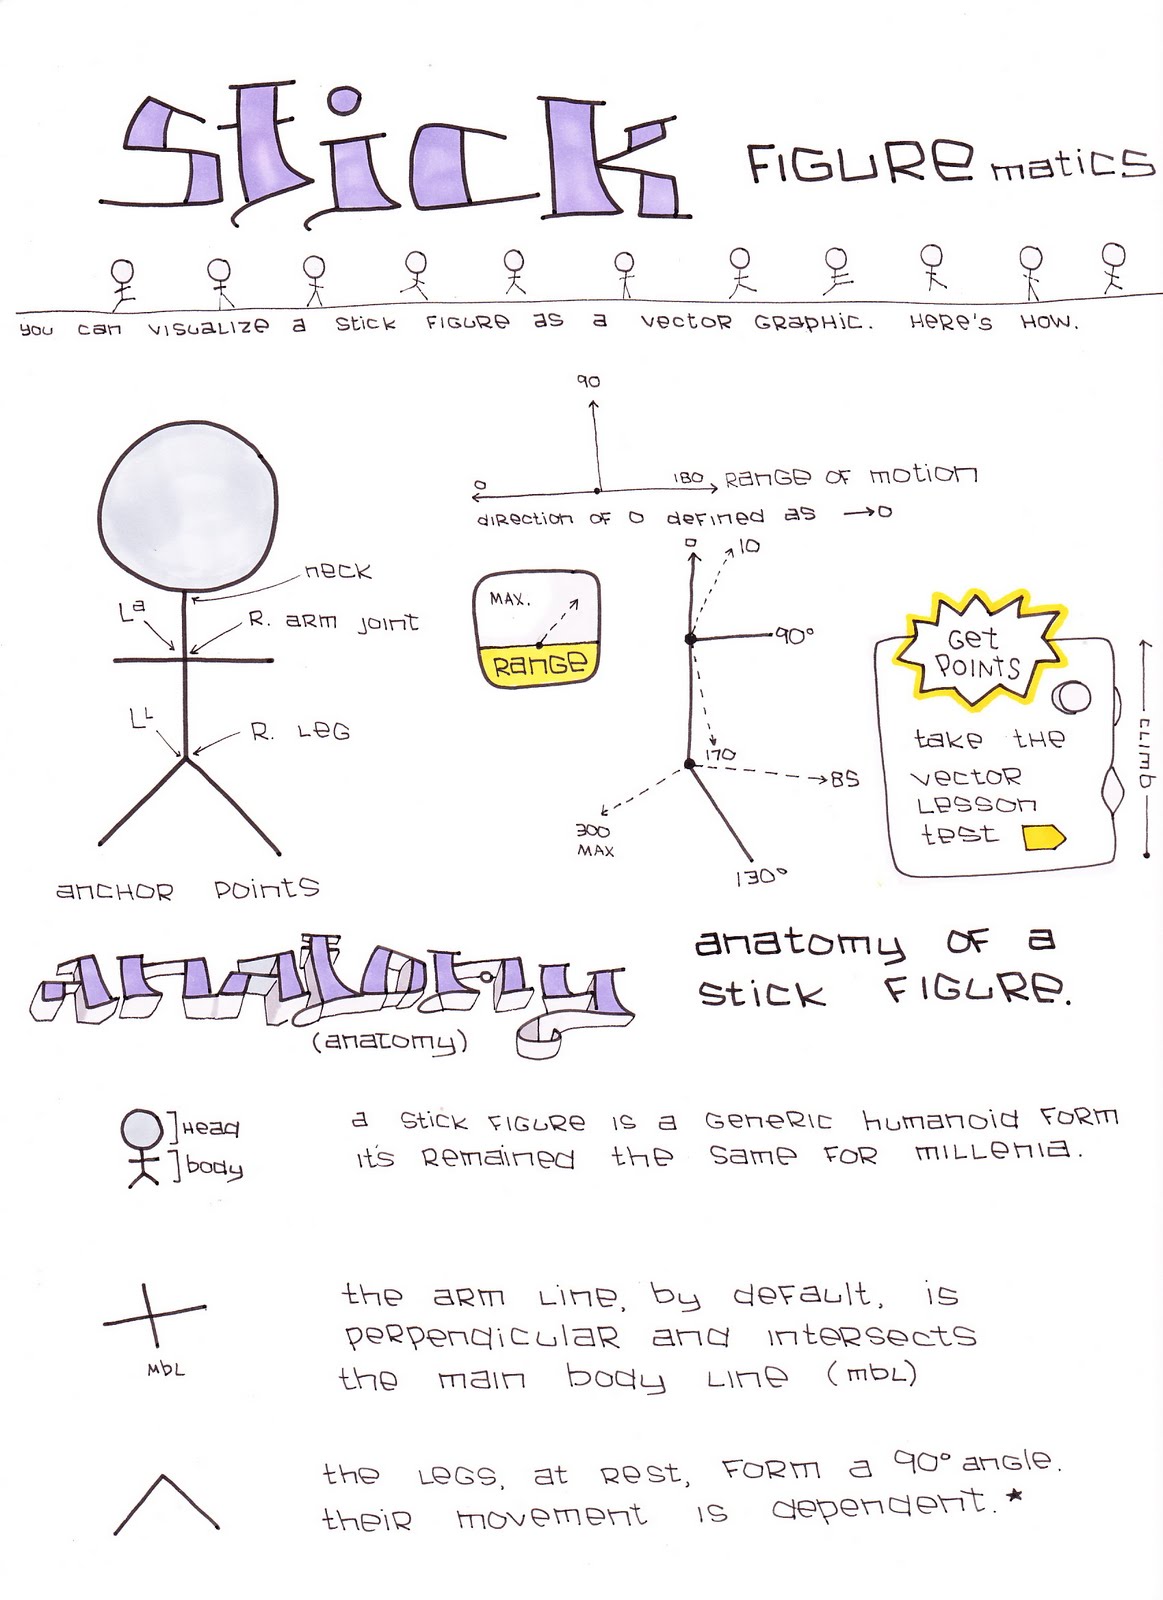 Stick FIGURE matics
you can visualize a stick figure as a vector graphic. Here's how.
90
0
180
Range of motion
direction of 0 defined as →0
neck
La
R. arm joint
LL
R. Leg
anchor points
MAX.
RANGE
0
10
90°
170
85
300
MAX
130°
Get
POINTS
take the
vector
lesson
test
climb
anatomy
(anatomy)
anatomy of a
stick figure.
Head
body
a stick figure is a generic humanoid form
it's remained the same for millenia.
MbL
the arm line, by default, is
perpendicular and intersects
the main body line (mbL)
the legs, at rest, form a 90° angle.
their movement is dependent.★